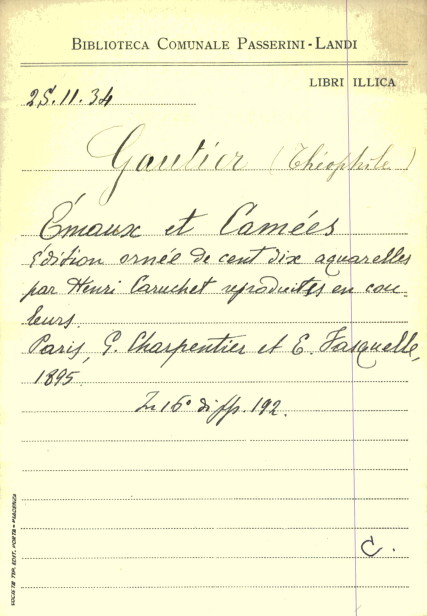 BIBLIOTECA COMUNALE PASSERINI-LANDI
LIBRI ILLICA
25.11.34
Gautier (Théophile)
Émaux et Camées
Édition ornée de cent dix aquarelles
par Henri Caruchet reproduites en cou-
leurs.
Paris, G. Charpentier et E. Fasquelle,
1895.
In 16° di pp. 192.
C.